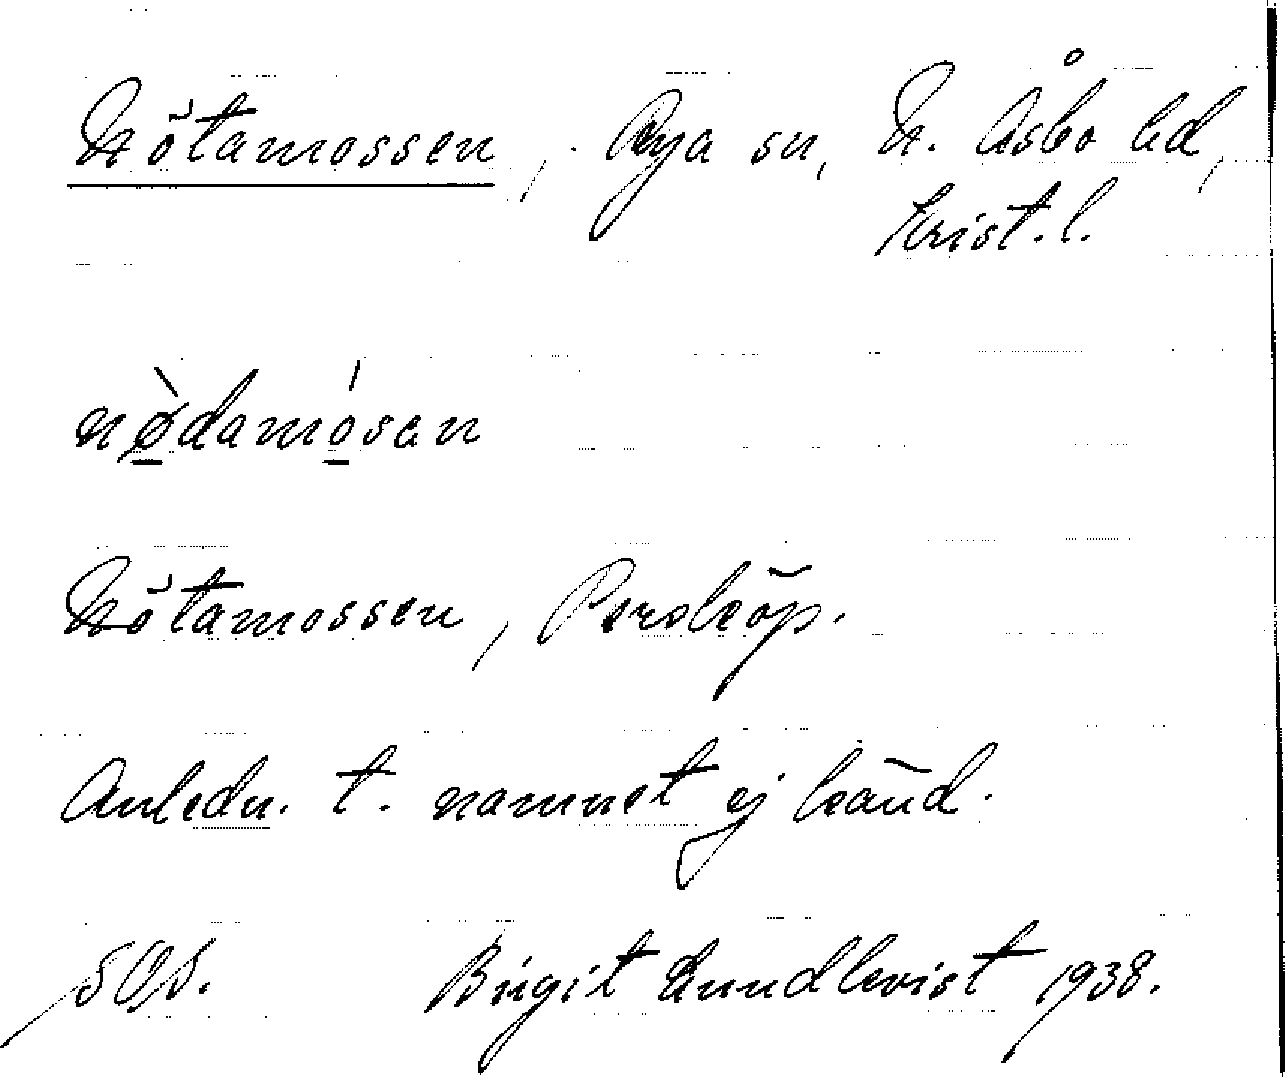 Nötamossen, Rya sn, N. Åsbo hd,
Krist. l.
nø̀damósan
Nötamossen, Perstorp.
Anledn. t. namnet ej känd.
SOS. Birgit Lundkvist 1938.